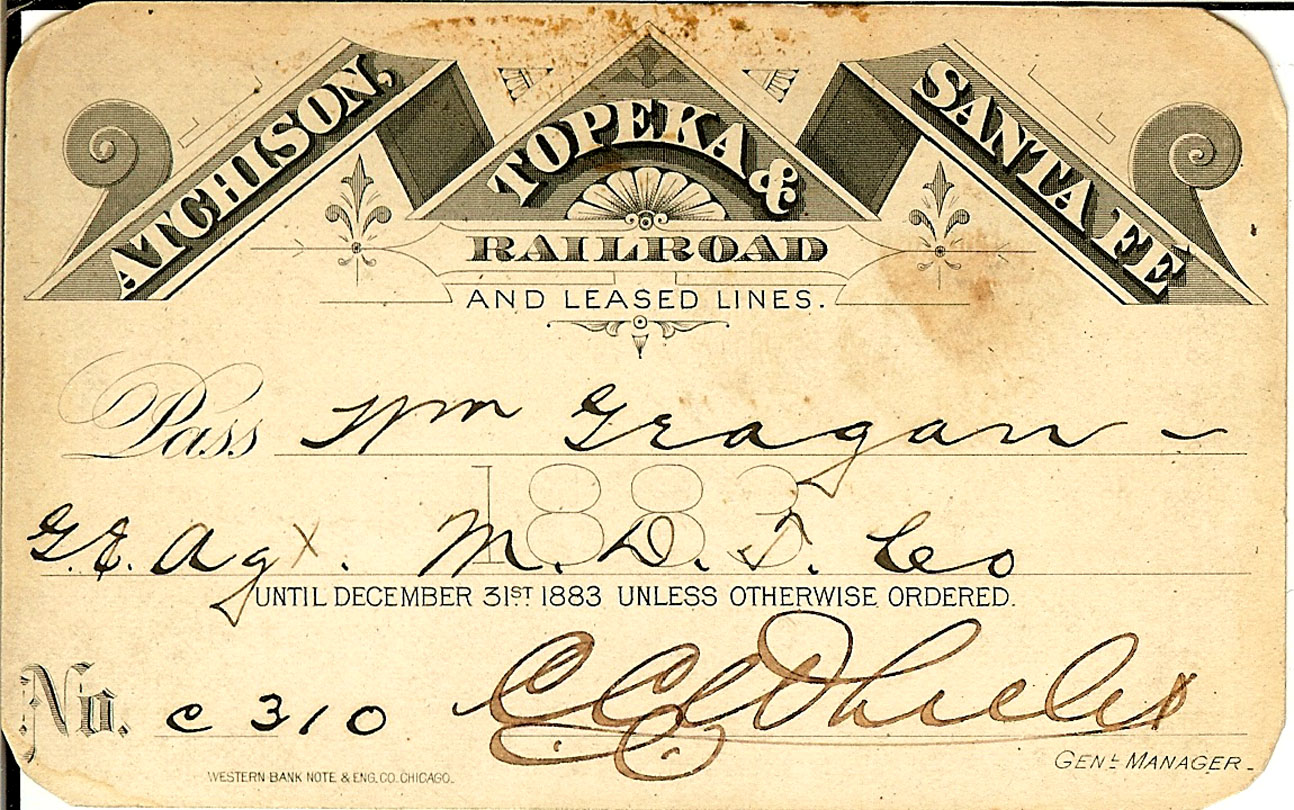 ATCHISON, TOPEKA & SANTA FÉ
RAILROAD
AND LEASED LINES.
Pass Wm Geagan
1883
G.E. Agt. M.D.T. Co
UNTIL DECEMBER 31ST 1883 UNLESS OTHERWISE ORDERED.
No. c 310 C C Wheeler
GENL MANAGER.
WESTERN BANK NOTE & ENG. CO. CHICAGO.